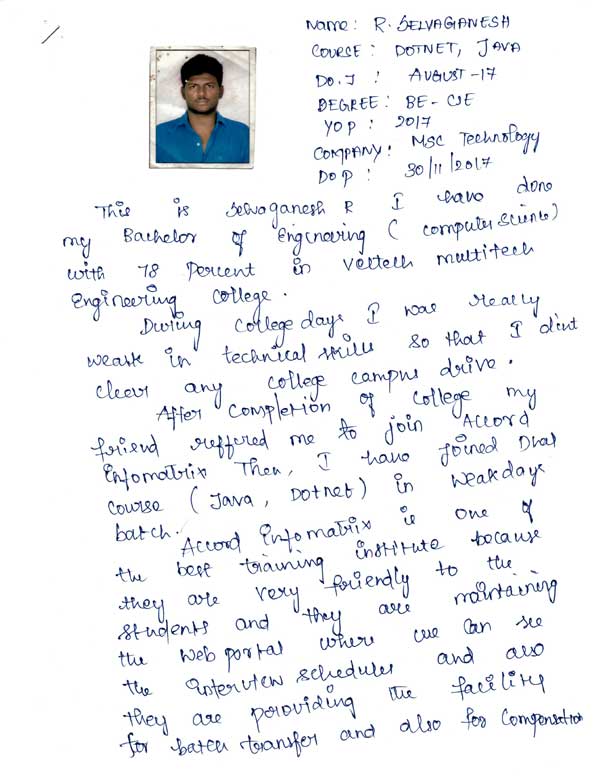 Name: R. SELVAGANESH
COURSE: DOTNET, JAVA
D.O.J : AUGUST-17
DEGREE: BE - CSE
YOP : 2017
COMPANY: MSC Technology
DOP : 30/11/2017
This is Selvaganesh R I have done
my Bachelor of Engineering (computer science)
with 78 percent in Veltech multitech
Engineering college.
During college days I was really
weak in technical skills so that I did'nt
clear any college campus drive.
After completion of college my
friend reffered me to join Accord
Infomatrix Then, I have joined Dual
course (Java, Dotnet) in weakdays
batch.
Accord Infomatrix is one of
the best training institute because
they are very friendly to the
students and they are maintaining
the web portal where we can see
the interview schedules and also
they are providing the facility
for batch transfer and also for compensation